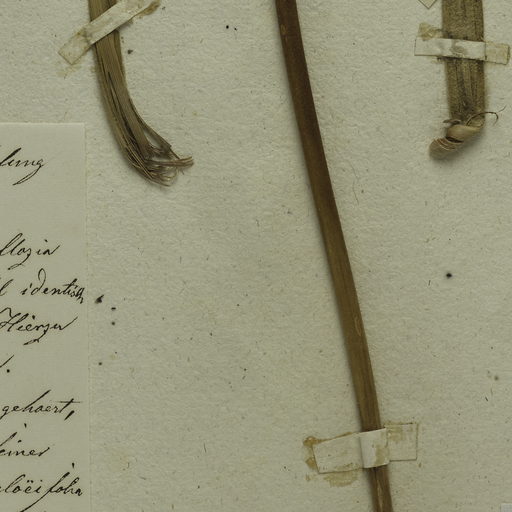 llozia
identisch
Hierzu
gehoert,
einer
aloëifolia